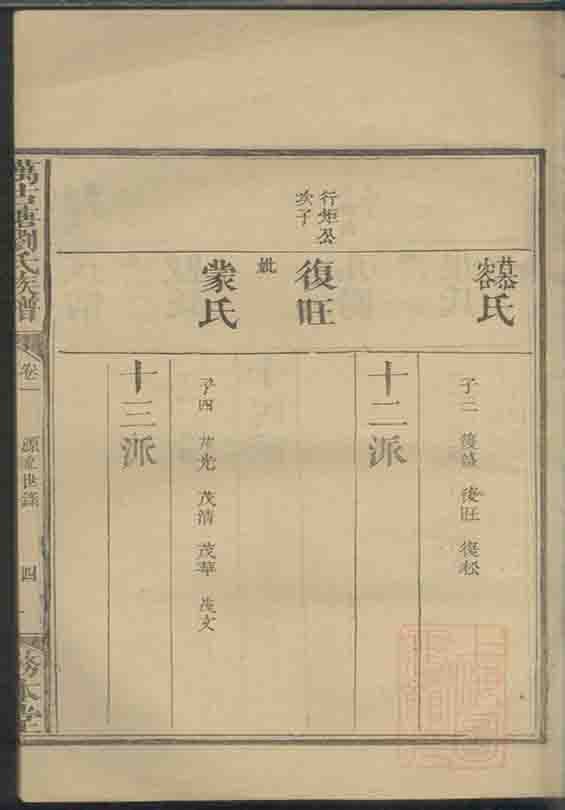 氏
子三 復盛 復旺 復松
十二派
行炬公
次子
復旺
妣
蒙氏
子四 茂光 茂清 茂華 茂文
十三派
萬古塘劉氏族譜
卷一
源流世録
四
務本堂